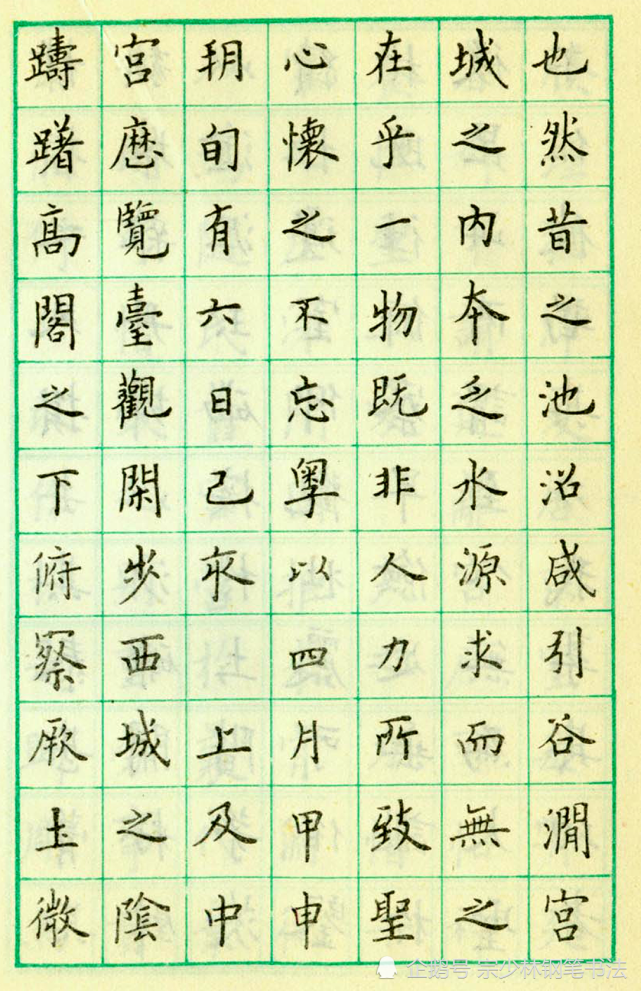 也然昔之池沼咸引谷澗宫
城之内本乏水源求而無之
在乎一物既非人力所致聖
心懷之不忘粤以四月甲申
朔旬有六日己亥上及中
宫歷覽臺觀閑步西城之陰
躊躇高閣之下俯察厥土微
企鹅号 宗少林钢笔书法